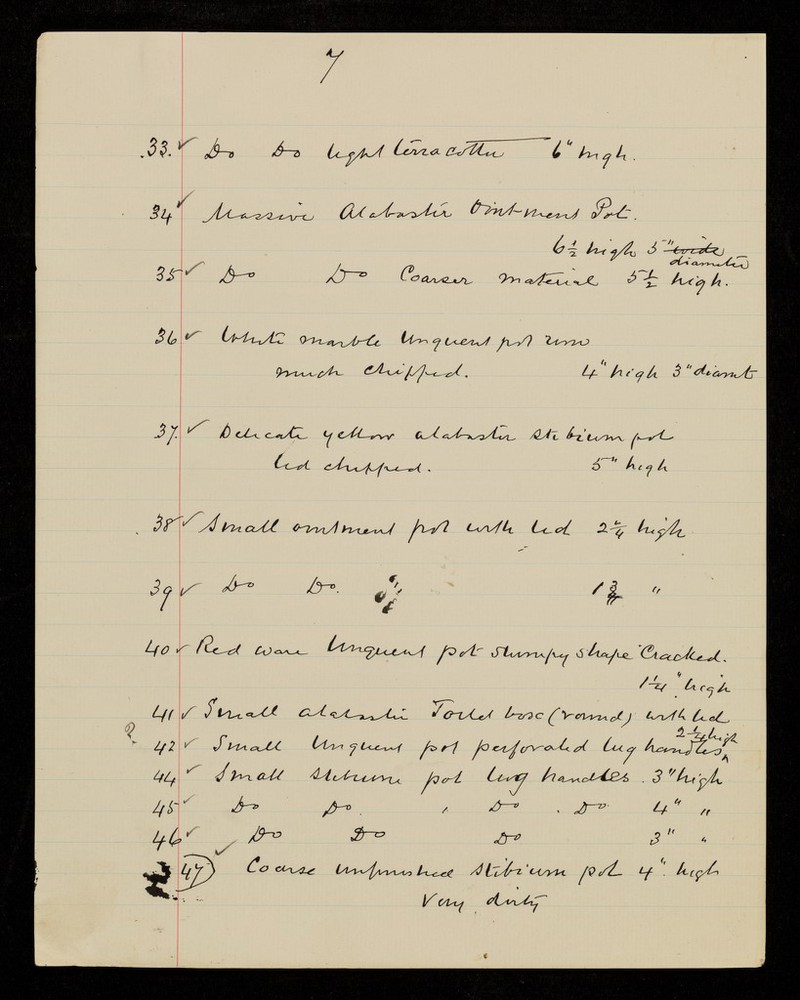 7
33. ✓ Do Do light terracotta 6" high.
34 ✓ Massive Alabaster Ointment Pot.
6½ high 5" wide diameter
35 ✓ Do Do Coarser material 5½ high.
36 ✓ White marble Unguent pot rim
much chipped. 4" high 3" diamt
37. ✓ Delicate yellow alabaster stibium pot
lid chipped. 5" high
38 ✓ Small ointment pot with lid high
39 ✓ Do Do. 1¾ "
40 ✓ Red ware Unguent pot stumpy shape Cracked.
1¼" high
41 ✓ Small alabaster Toilet box (round) with lid
2¼ high
? 42 ✓ Small Unguent pot perforated lug handles
44 ✓ Small stibium pot lug handles. 3" high
45 ✓ Do Do. Do . Do 4" "
46 ✓ Do Do Do 3" "
47 ✓ Coarse unfinished stibium pot 4". high
Very dirty